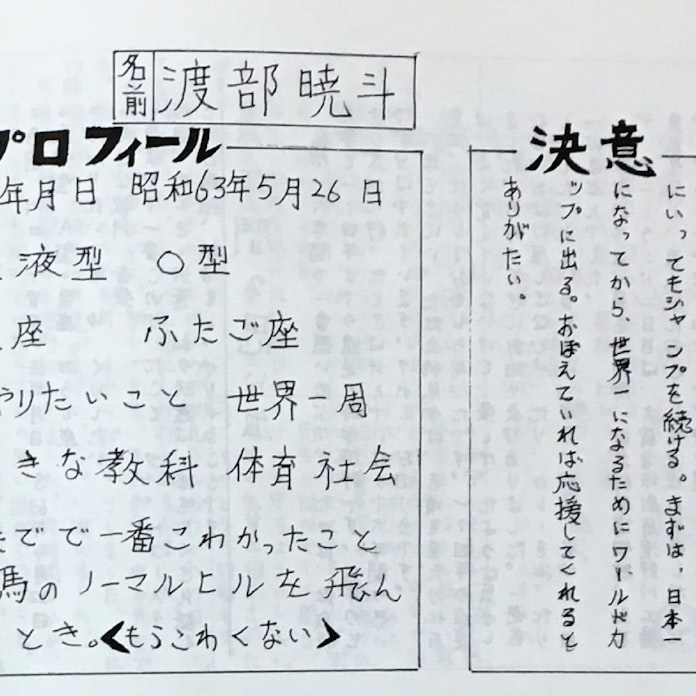 名前 渡部暁斗
プロフィール
年月日 昭和63年5月26日
液型 O型
座 ふたご座
やりたいこと 世界一周
きな教科 体育 社会
までで一番こわかったこと
馬のノーマルヒルを飛ん
とき。<もうこわくない>
決意
にいってもジャンプを続ける。まずは、日本一
になってから、世界一になるためにワールドカ
ップに出る。おぼえていれば応援してくれると
ありがたい。